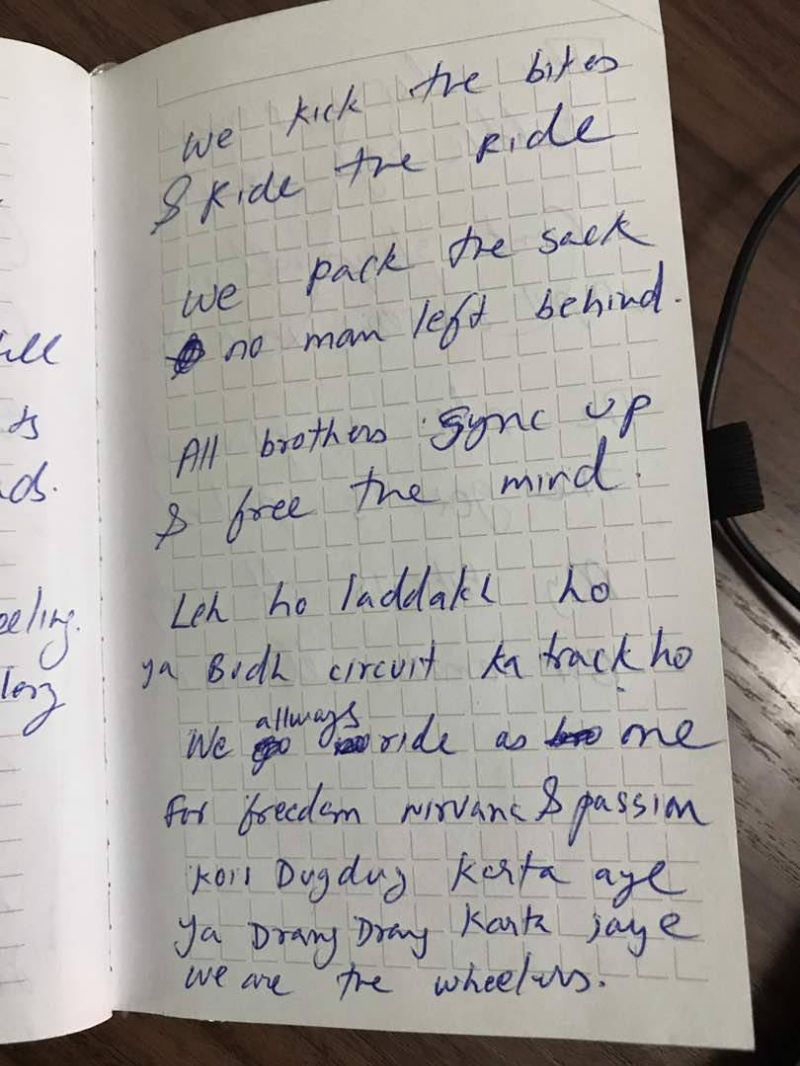 ill
ts
ds.
eeling.
We kick the bikes
& Ride the Ride
We pack the sack
no man left behind.
All brothers sync up
& free the mind.
Leh ho laddakh ho
ya Budh circuit ka track ho
We allways ride as one
for freedom nirvana & passion
koii Dugdug karta aye
ya Drang Drang karta jaye
we are the wheelers.